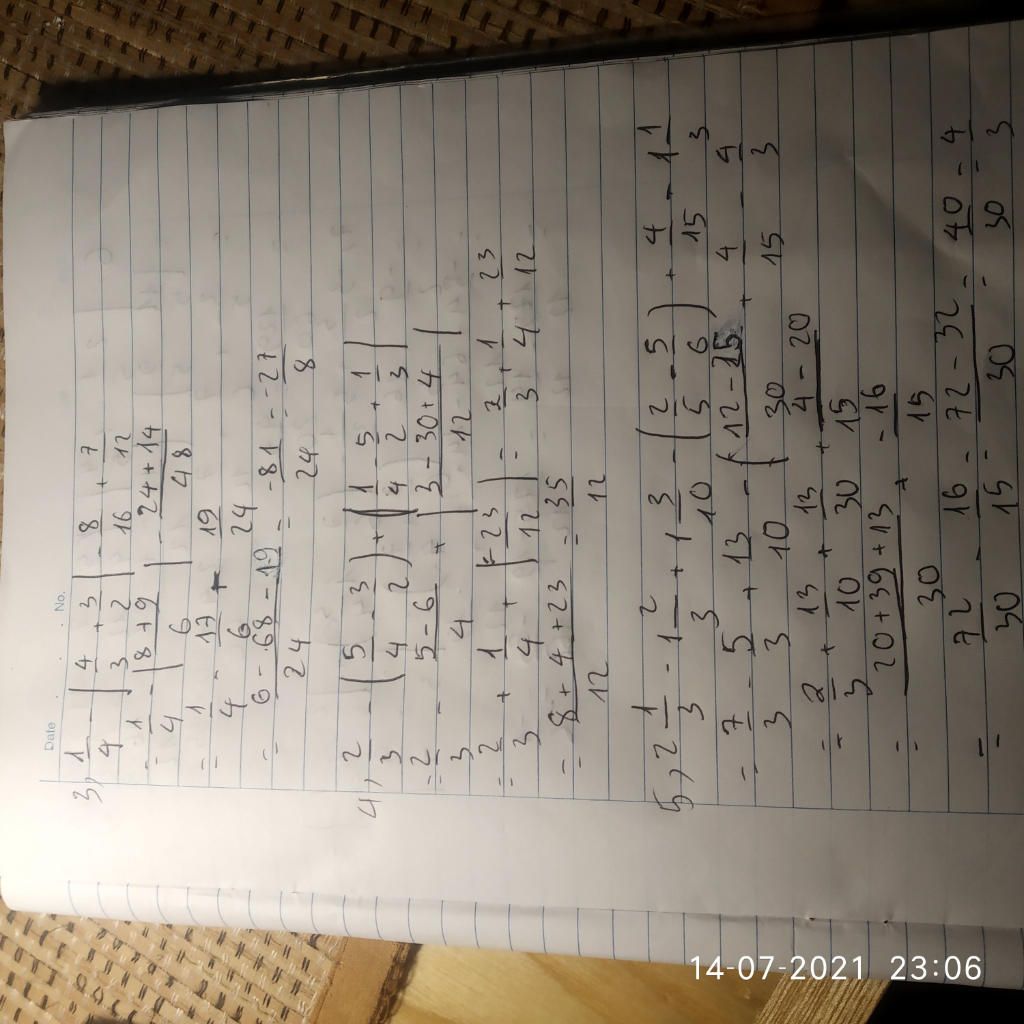 Date . . No.
3, 1/4 - | 4/3 + 3/2 | - 8/16 + 7/12
= 1/4 - | 8+9/6 | - 24+14/48
= 1/4 - 17/6 + 19/24
= 6-68-19/24 = -81/24 = -27/8
4, 2/3 - (5/4 - 3/2) + |1/4 - 5/2 + 1/3|
= 2/3 - 5-6/4 + |3-30+4/12|
= 2/3 + 1/4 + |-23/12| = 2/3 + 1/4 + 23/12
= 8+4+23/12 = 35/12
5, 2 1/3 - 1 2/3 + 1 3/10 - (2/5 - 5/6) + 4/15 - 1 1/3
= 7/3 - 5/3 + 13/10 - (12-25/30) + 4/15 - 4/3
= 2/3 + 13/10 + 13/30 + 4-20/15
= 20+39+13/30 + -16/15
= 72/30 - 16/15 = 72-32/30 = 40/30 = 4/3
14-07-2021 23:06